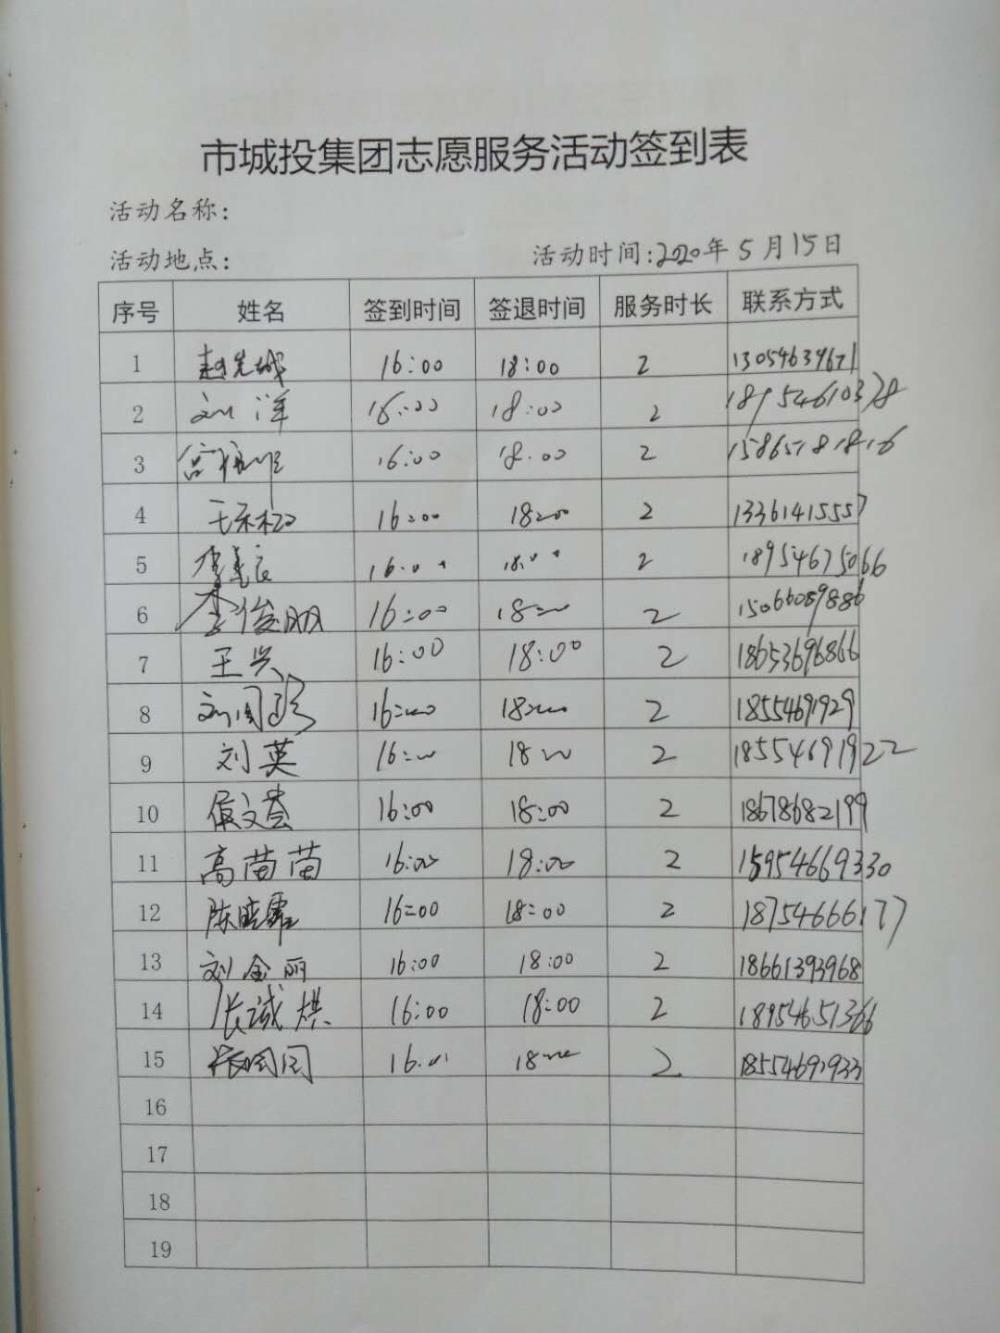 市城投集团志愿服务活动签到表
活动名称:
活动地点: 活动时间:2020年5月15日
序号 姓名 签到时间 签退时间 服务时长 联系方式
1 16:00 18:00 2
2 刘洋 16:00 18:00 2 18954610378
3 16:00 18:00 2
4 16:00 18:00 2 13361415557
5 16:00 18:00 2 18954675066
6 李俊朋 16:00 18:00 2 15066089886
7 王兴 16:00 18:00 2 18653696866
8 16:00 18:00 2 18554691929
9 刘英 16:00 18:00 2 18554691922
10 16:00 18:00 2 18678682199
11 高苗苗 16:00 18:00 2 15954669330
12 陈晓霏 16:00 18:00 2 18754666177
13 刘金丽 16:00 18:00 2 18661393968
14 张诚琪 16:00 18:00 2 18954651366
15 16:00 18:00 2 18554691933
16
17
18
19